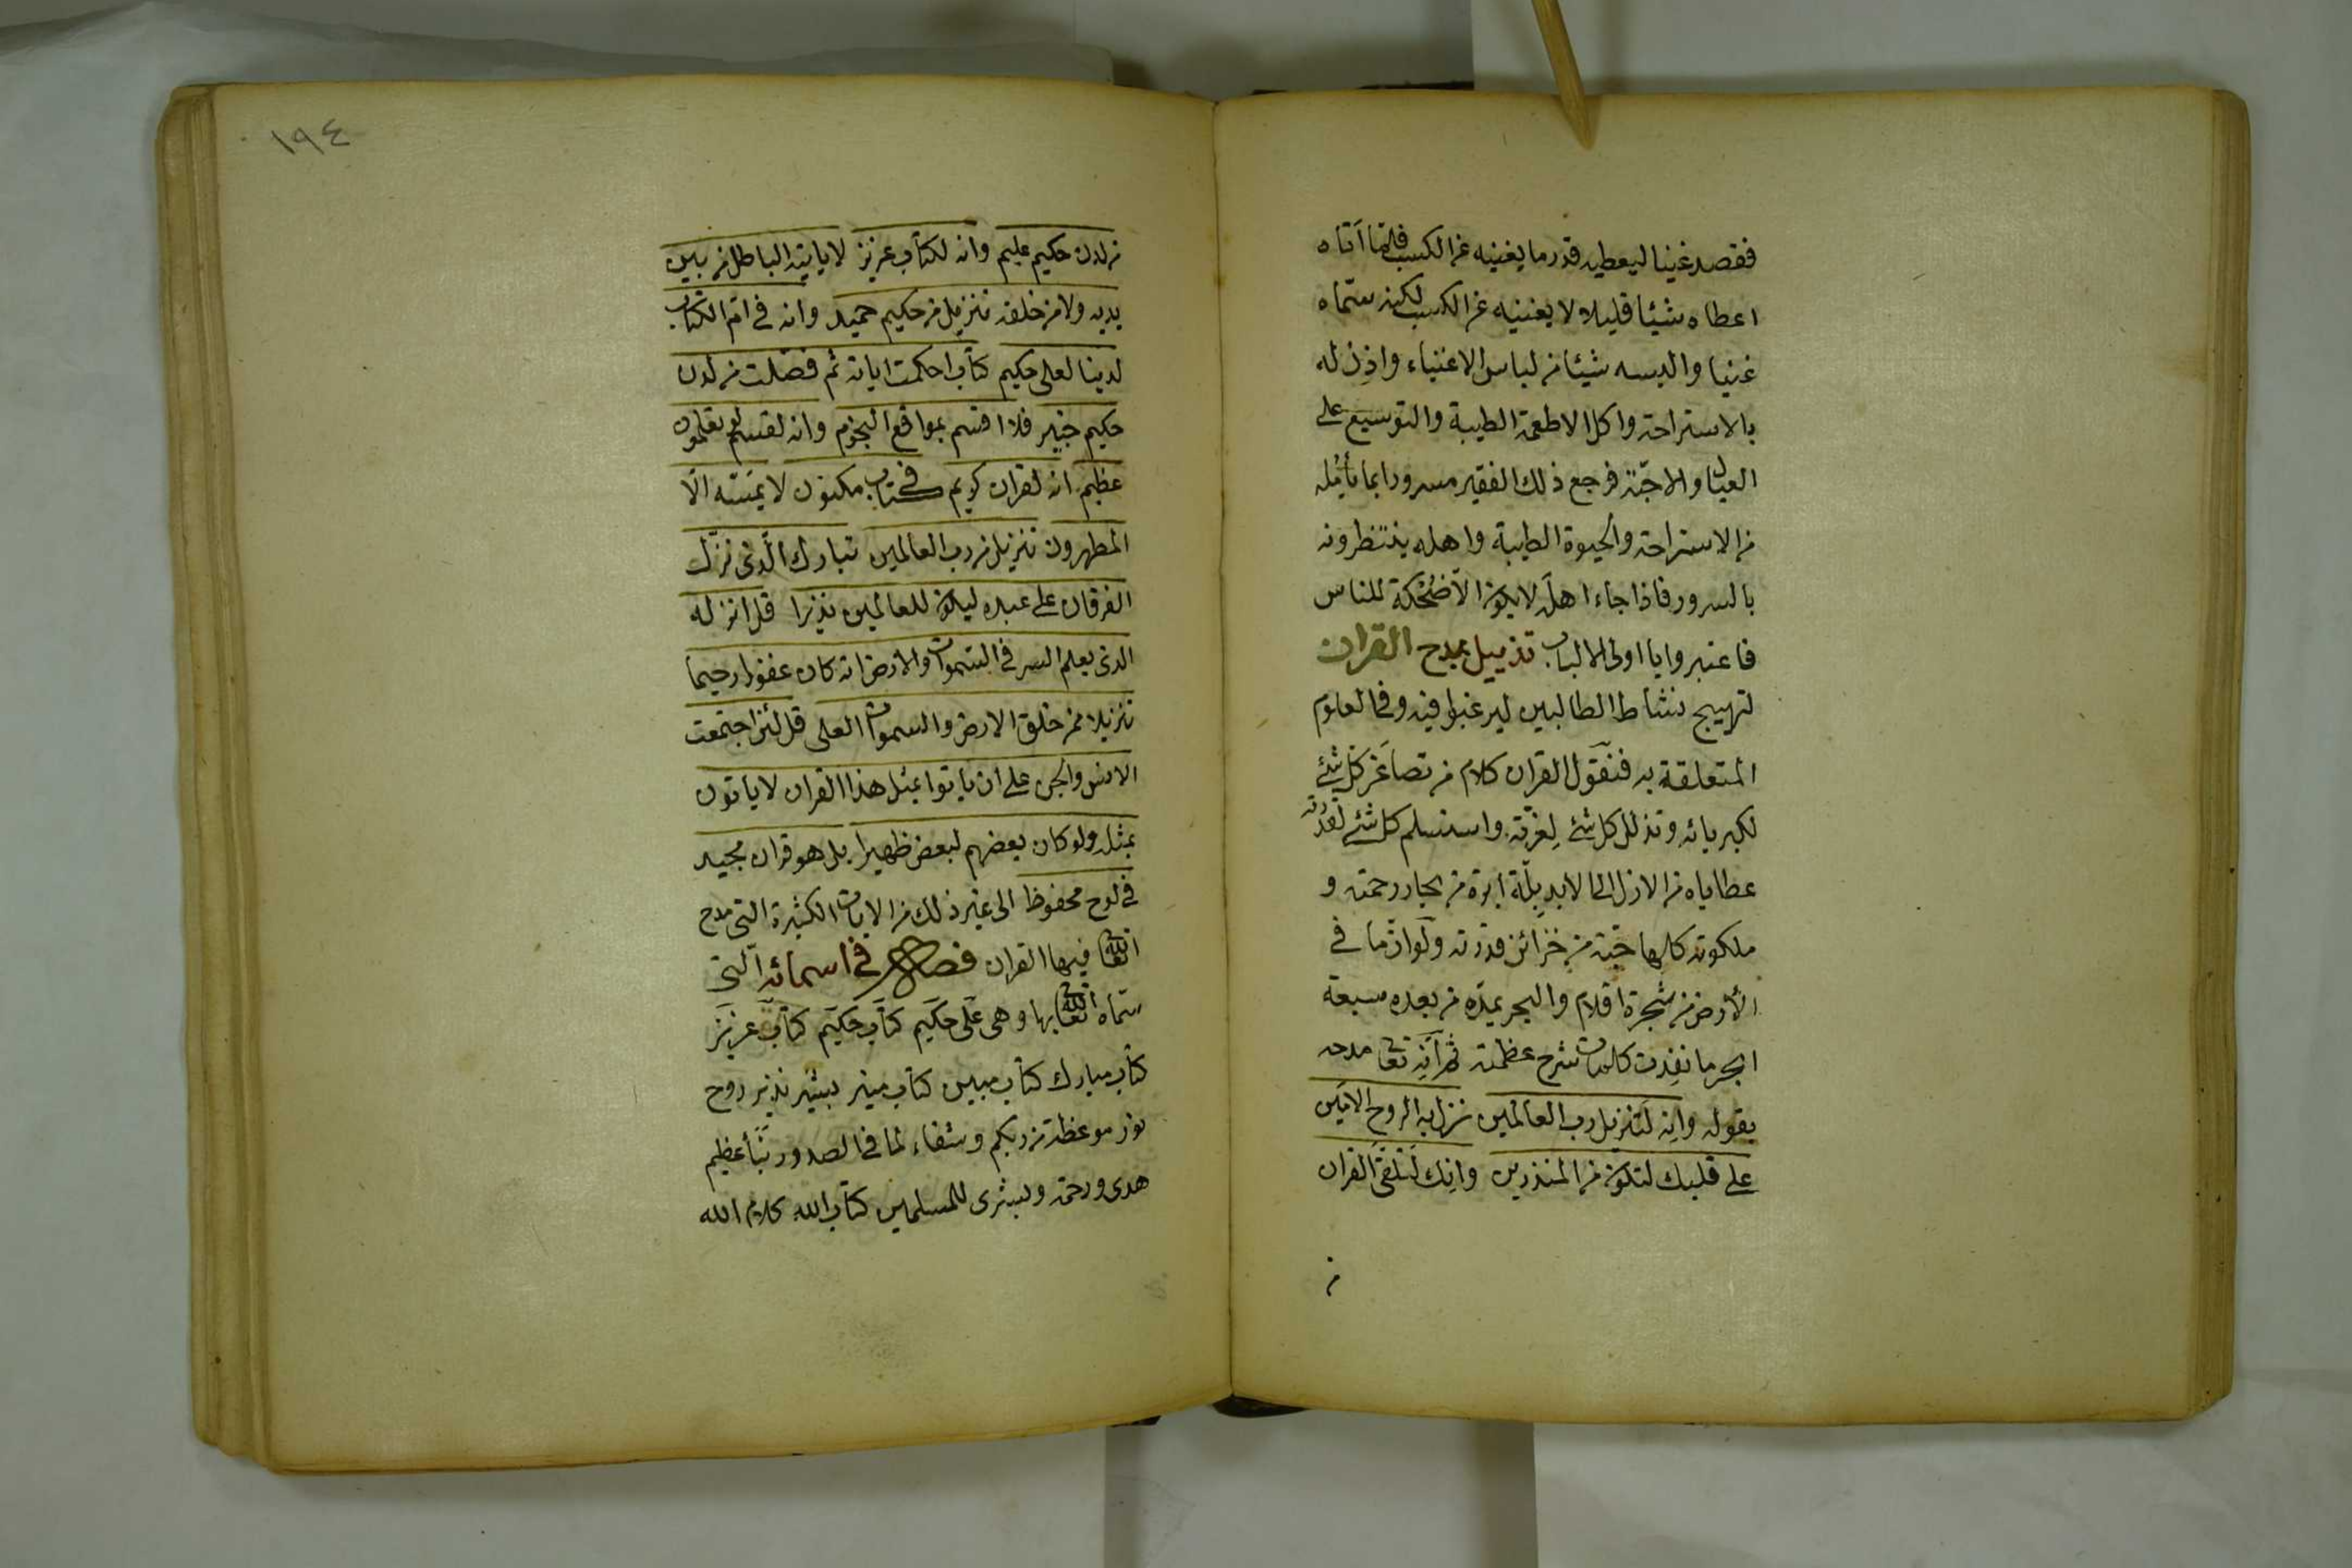 فقصد غنيا ليعطيه قدر ما يغنيه عن الكسب فلما اتاه
اعطاه شيئا قليلا لا يغنيه عن الكسب لكنه سمّاه
غنيا والبسه شيئا من لباس الاغنياء واذن له
بالاستراحة واكل الاطعمة الطيبة والتوسيع على
العيال والاحبّة فرجع ذلك الفقير مسرورا بما يأمله
من الاستراحة والحيوة الطيبة واهله ينتظرونه
بالسرور فاذا جاء اهله لا يكون الا ضُحْكة للناس
فاعتبروا يا اولى الالباب تذييل بمدح القران
لتهييج نشاط الطالبين ليرغبوا فيه وفى العلوم
المتعلقة به فنقول القران كلام من تصاغر كل شئ
لكبريائه وتذلل كل شئ لعزّته واستسلم كل شئ لقدرته
عطاياه من الازل الى الابد بلّة ابرة من بحار رحمته و
ملكوته كلها حبّة من خزائن قدرته ولو انّ ما فى
الأرض من شجرة اقلام والبحر يمدّه من بعده سبعة
ابحر ما نفِدت كلمات شرح عظمته ثم انّه تعا مدحه
بقوله وانه لَتنزيل رب العالمين نزل به الروح الامين
على قلبك لتكون من المنذرين وانك لَتلقّى القران
من
١٩٤
من لدن حكيم عليم وانه لكتاب عزيز لا ياتيه الباطل من بين
يديه ولا من خلفه تنزيل من حكيم حميد وانه فى امّ الكتاب
لدينا لعلى حكيم كتاب احكمت اياته ثم فصّلت من لدن
حكيم خبير فلا اقسم بمواقع النجوم وانه لقسم لو تعلمون
عظيم انه لقران كريم فى كتاب مكنون لا يمسّه الّا
المطهرون تنزيل من رب العالمين تبارك الّذى نزّل
الفرقان على عبده ليكون للعالمين نذيرا قل انزله
الذى يعلم السر فى السّموات والارض انه كان غفورا رحيما
تنزيلا ممن خلق الارض والسموات العلى قل لئن اجتمعت
الانس والجن على ان ياتوا بمثل هذا القران لا ياتون
بمثله ولو كان بعضهم لبعض ظهيرا بل هو قران مجيد
فى لوح محفوظ الى غير ذلك من الايات الكثيرة التى مدح
الله تعا فيها القران فصل فى اسمائه الّتى
سمّاه الله تعا بها وهى عَلى حكيم كتاب حكيم كتاب عزيز
كتاب مبارك كتاب مبين كتاب منير بشير نذير روح
نور موعظة من ربكم وشفاء لما فى الصدور نبأ عظيم
هدى ورحمة وبشرى للمسلمين كتاب الله كلام الله